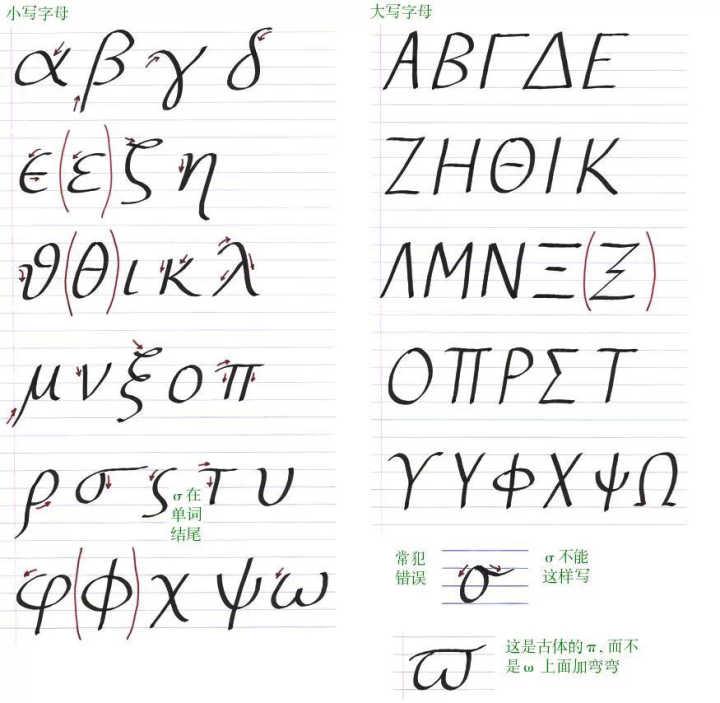 小写字母
α β γ δ
ϵ (ε) ζ η
ϑ (θ) ι κ λ
μ ν ξ ο π
ρ σ ς τ υ
σ 在
单词
结尾
φ (ϕ) χ ψ ω
大写字母
Α Β Γ Δ Ε
Ζ Η Θ Ι Κ
Λ Μ Ν Ξ (Ξ)
Ο Π Ρ Σ Τ
ϒ Υ Φ Χ Ψ Ω
常犯
错误
σ
σ 不能
这样写
ϖ
这是古体的 π , 而不
是 ω 上面加弯弯